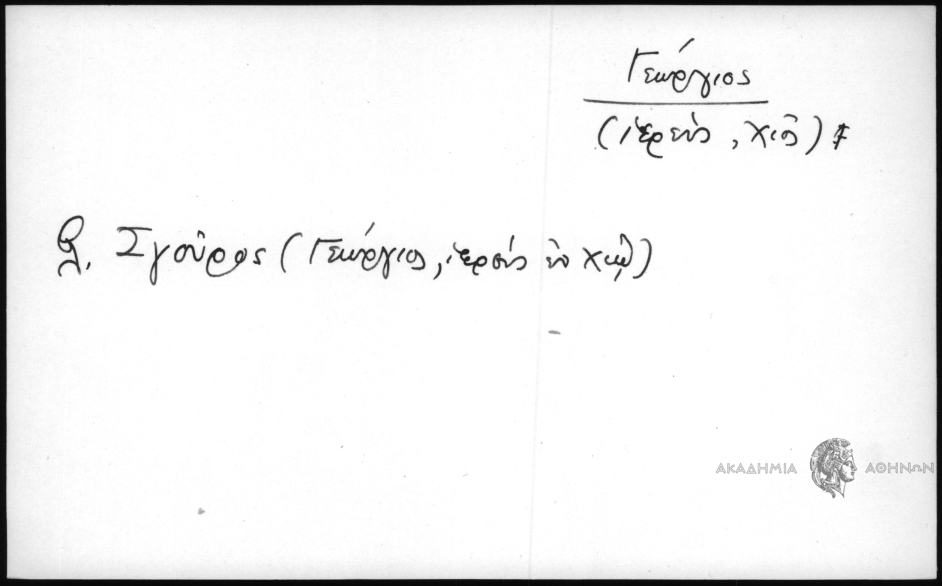 Γεώργιος
(ἱερεύς, Χῖος)
βλ. Σγοῦρος (Γεώργιος, ἱερεύς ἐν Χίῳ)
ΑΚΑΔΗΜΙΑ ΑΘΗΝΩΝ